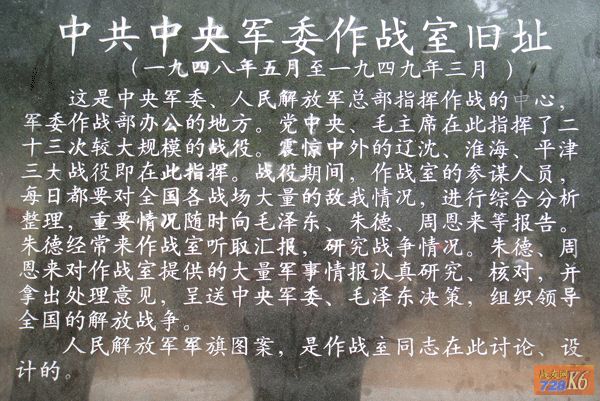 中共中央军委作战室旧址
（一九四八年五月至一九四九年三月 ）
这是中央军委、人民解放军总部指挥作战的中心，
军委作战部办公的地方。党中央、毛主席在此指挥了二
十三次较大规模的战役。震惊中外的辽沈、淮海、平津
三大战役即在此指挥。战役期间，作战室的参谋人员，
每日都要对全国各战场大量的敌我情况，进行综合分析
整理，重要情况随时向毛泽东、朱德、周恩来等报告。
朱德经常来作战室听取汇报，研究战争情况。朱德、周
恩来对作战室提供的大量军事情报认真研究、核对，并
拿出处理意见，呈送中央军委、毛泽东决策，组织领导
全国的解放战争。
人民解放军军旗图案，是作战室同志在此讨论、设
计的。
战友网
728K6